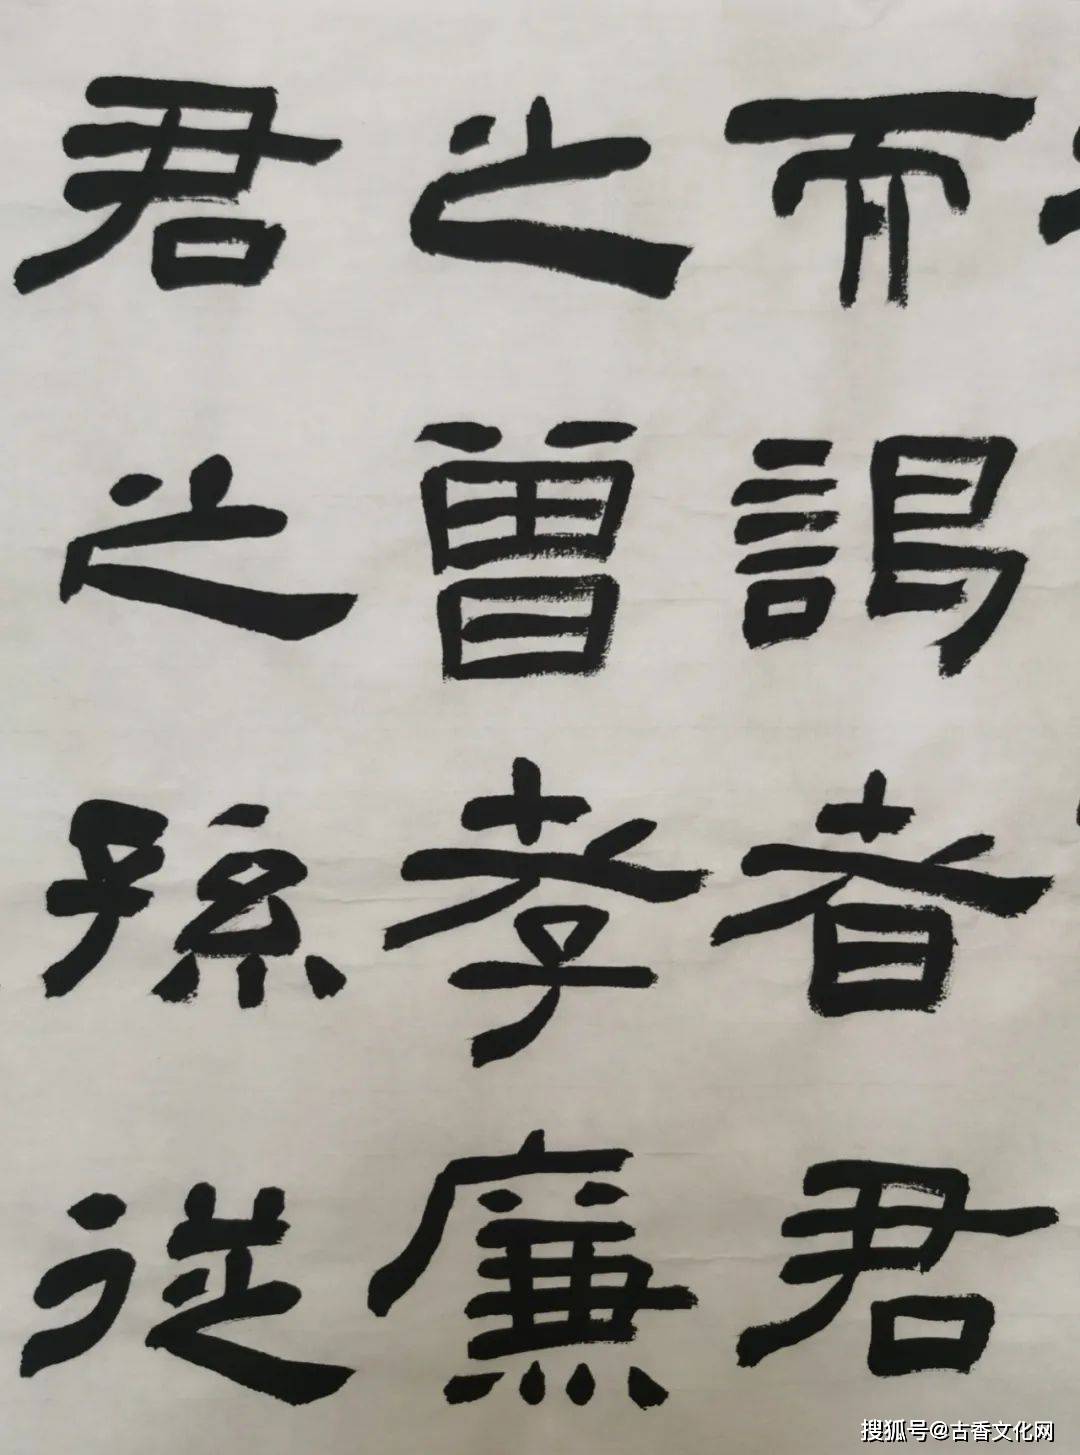 而謁者君
之曾孝廉
君之孫從
搜狐号@古香文化网